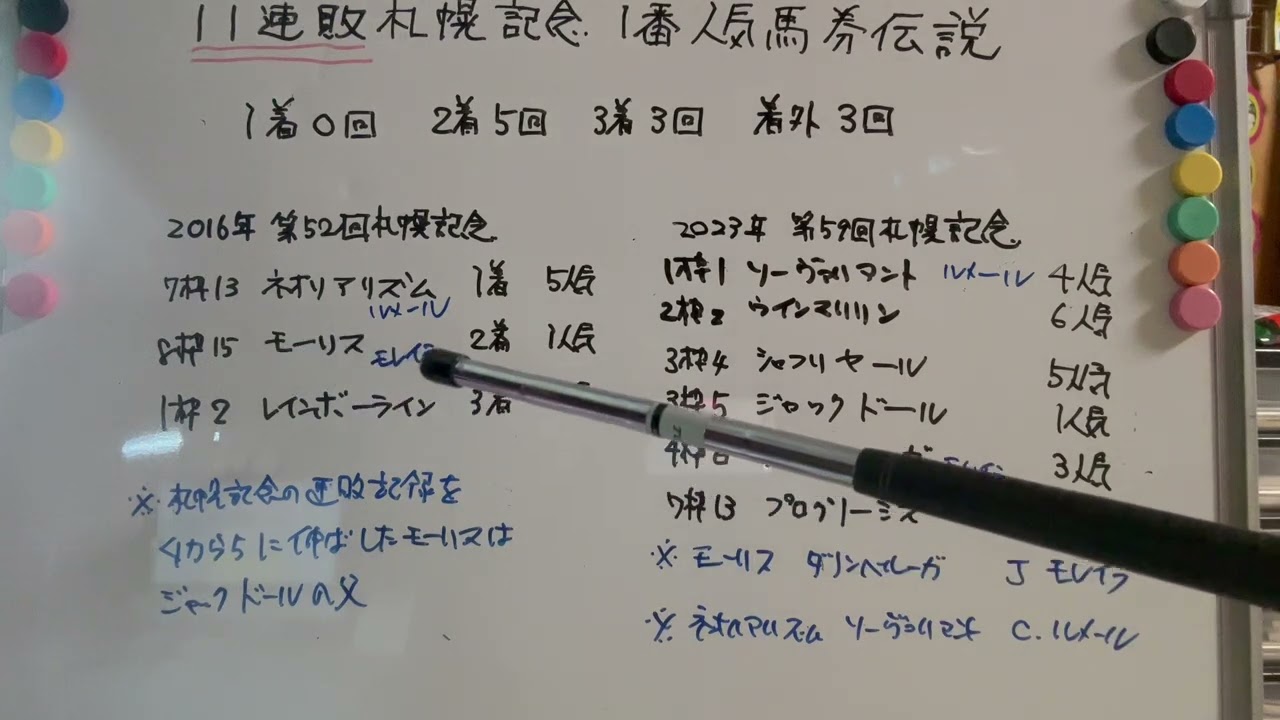 11連敗札幌記念 1番人気馬券伝説
1着0回 2着5回 3着3回 着外3回
2016年 第52回札幌記念
7枠13 ネオリアリズム 1着 5人気
ルメール
8枠15 モーリス 2着 1人気
モレイラ
1枠2 レインボーライン 3着
※札幌記念の連敗記録を
4から5に伸ばしたモーリスは
ジャックドールの父
2023年 第59回札幌記念
1枠1 ソーヴァリアント ルメール 4人気
2枠2 ウインマリリン 6人気
3枠4 シャフリヤール 5人気
3枠5 ジャックドール 1人気
4枠 3人気
7枠13 プログノーシス
※ モーリス ダノンベルーガ J モレイラ
※ ネオリアリズム ソーヴァリアント C.ルメール